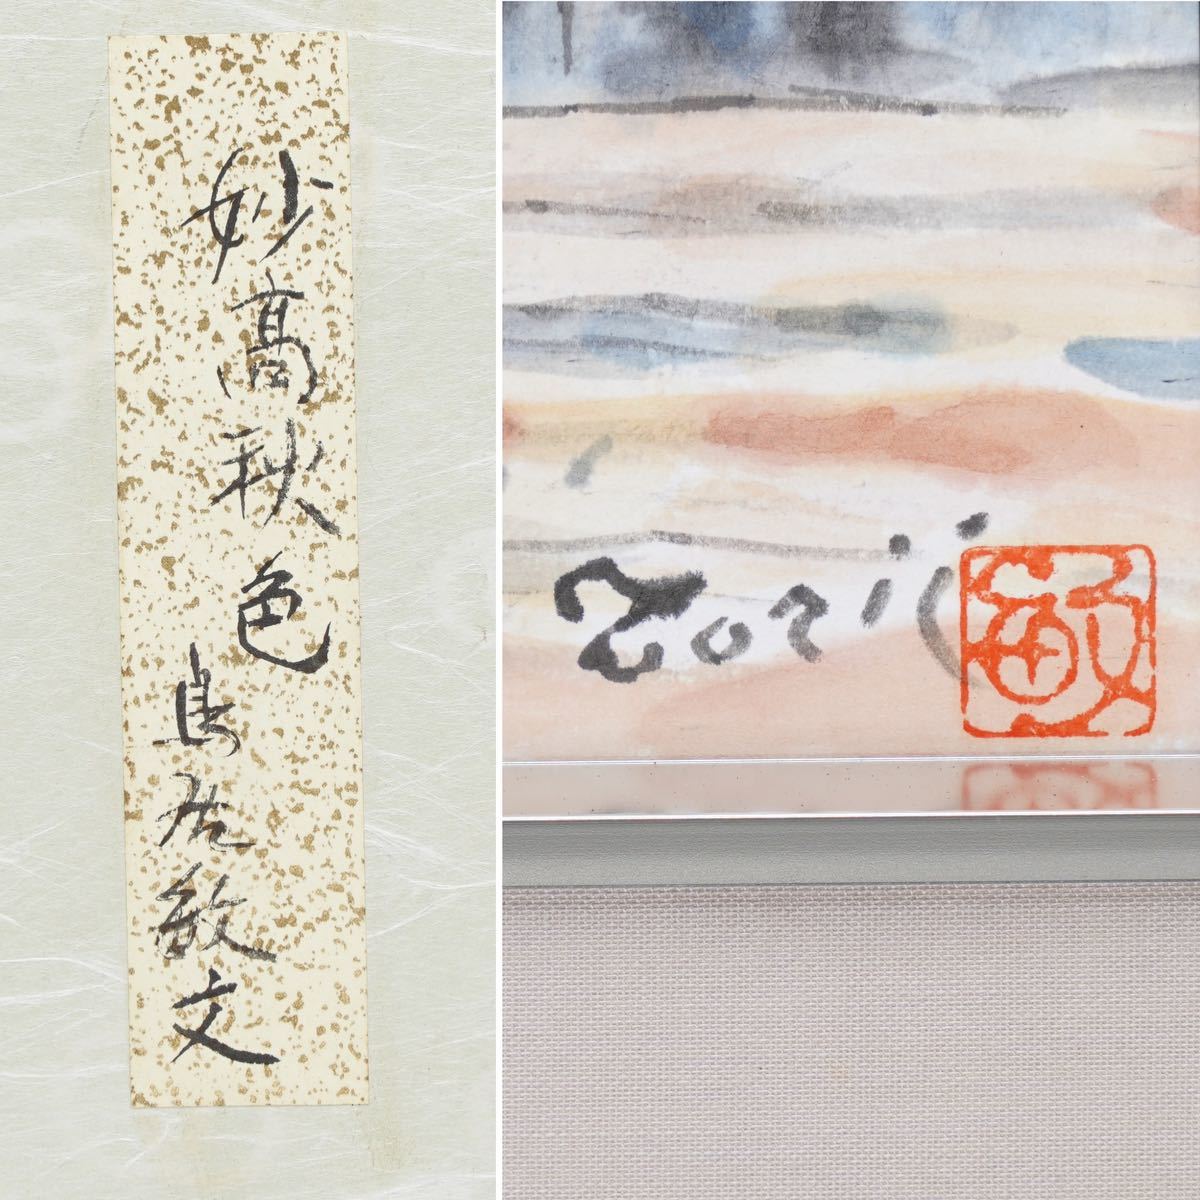 妙高秋色 鳥居敏文
Torii
敏